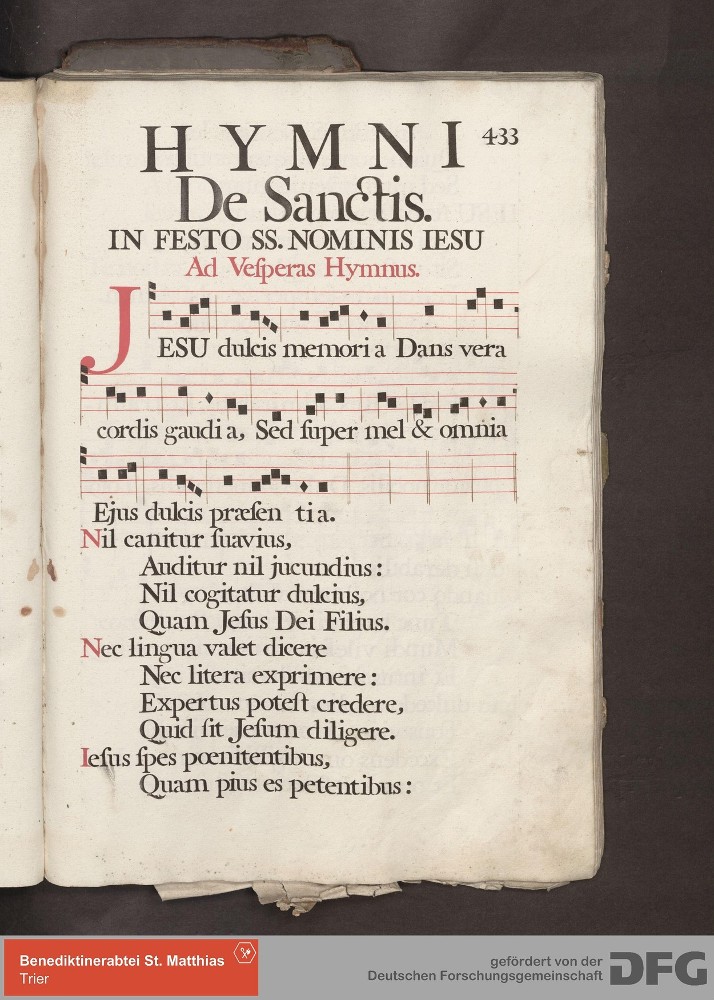 433
HYMNI
De Sanctis.
IN FESTO SS. NOMINIS IESU
Ad Veſperas Hymnus.
JESU dulcis memori a Dans vera
cordis gaudi a, Sed ſuper mel & omnia
Ejus dulcis præſen ti a.
Nil canitur ſuavius,
Auditur nil jucundius:
Nil cogitatur dulcius,
Quam Jeſus Dei Filius.
Nec lingua valet dicere
Nec litera exprimere:
Expertus poteſt credere,
Quid ſit Jeſum diligere.
Ieſus ſpes pœnitentibus,
Quam pius es petentibus:
Benediktinerabtei St. Matthias
Trier
gefördert von der
Deutschen Forschungsgemeinschaft
DFG